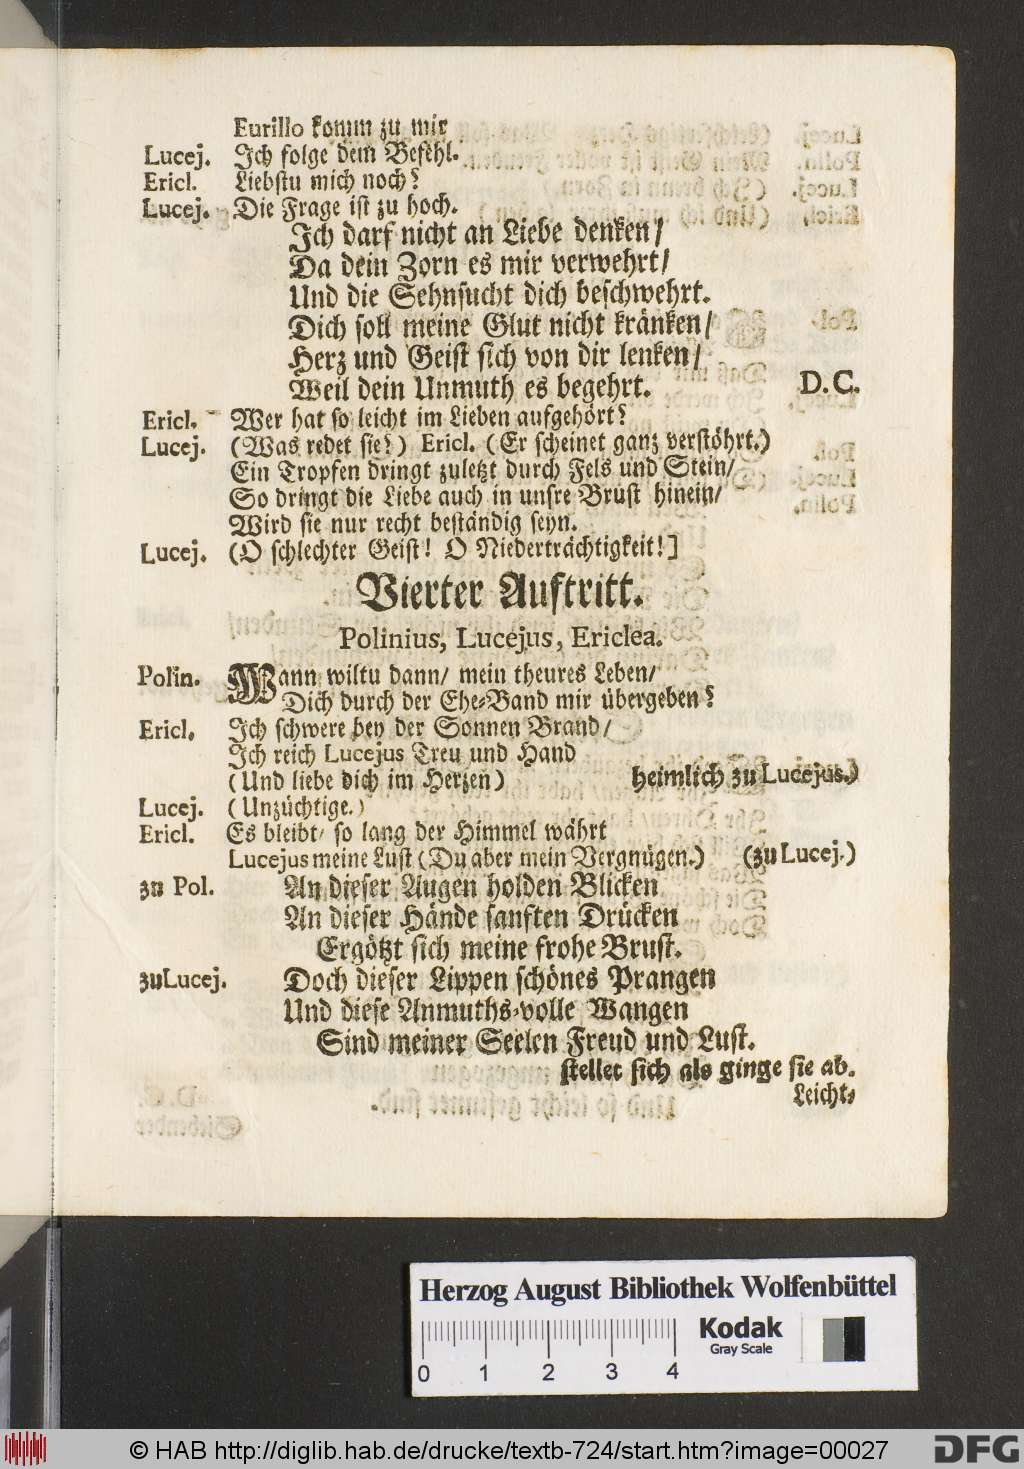 Eurillo komm zu mir
Lucej. Ich folge dem Befehl.
Ericl. Liebstu mich noch?
Lucej. Die Frage ist zu hoch.
Ich darf nicht an Liebe denken/
Da dein Zorn es mir verwehrt/
Und die Sehnsucht dich beschwehrt.
Dich soll meine Glut nicht kränken/
Herz und Geist sich von dir lenken/
Weil dein Unmuth es begehrt. D. C.
Ericl. Wer hat so leicht im Lieben aufgehört?
Lucej. (Was redet sie?) Ericl. (Er scheinet ganz verstöhrt.)
Ein Tropfen dringt zuletzt durch Fels und Stein/
So dringt die Liebe auch in unsre Brust hinein/
Wird sie nur recht beständig seyn.
Lucej. (O schlechter Geist! O Niederträchtigkeit!]
Vierter Auftritt.
Polinius, Lucejus, Ericlea.
Polin. Wann wiltu dann/ mein theures Leben/
Dich durch der Ehe-Band mir übergeben?
Ericl. Ich schwere bey der Sonnen Brand/
Ich reich Lucejus Treu und Hand
(Und liebe dich im Herzen) heimlich zu Lucejus.)
Lucej. (Unzüchtige.)
Ericl. Es bleibt/ so lang der Himmel währt
Lucejus meine Lust (Du aber mein Vergnügen.) (zu Lucej.)
zu Pol. An dieser Augen holden Blicken
An dieser Hände sanften Drücken
Ergötzt sich meine frohe Brust.
zu Lucej. Doch dieser Lippen schönes Prangen
Und diese Anmuths-volle Wangen
Sind meiner Seelen Freud und Lust.
stellet sich als ginge sie ab.
Leicht-
Herzog August Bibliothek Wolfenbüttel
Kodak
Gray Scale
0 1 2 3 4
© HAB http://diglib.hab.de/drucke/textb-724/start.htm?image=00027
DFG